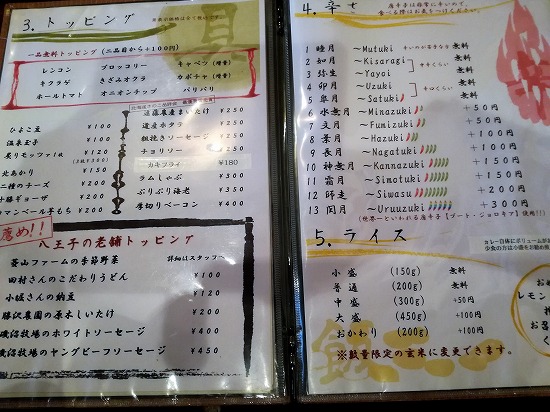 3. トッピング
一品無料トッピング(二品目から+100円)
レンコン ブロッコリー キャベツ(増量)
キクラゲ きざみオクラ カボチャ(増量)
ホールトマト オニオンチップ パリパリ
ひよこ豆 ¥100
温泉玉子 ¥100
炙りモッツァ1枚 ¥150
北あかり
二種のチーズ ¥200
十勝ギョーザ ¥200
カマンベール子もち ¥200
遠藤農産まいたけ ¥250
道産ホタテ ¥250
粗挽きソーセージ ¥250
チョリソー ¥250
カキフライ ¥180
ラムしゃぶ ¥300
ぷりぷり海老 ¥350
厚切りベーコン ¥400
薦め!!
八王子の老舗トッピング
峯山ファームの季節野菜 詳細はスタッフへ
田村さんのこだわりうどん ¥100
小城さんの納豆 ¥120
勝沢農園の原木しいたけ ¥200
磯沼牧場のホワイトソーセージ ¥400
磯沼牧場のヤングビーフソーセージ ¥450
4. 辛さ
1 睦月 ~Mutuki 辛いのが苦手な方 無料
2 如月 ~Kisaragi 無料
3 弥生 ~Yayoi 無料
4 卯月 ~Uzuki 無料
5 皐月 ~Satuki 無料
6 水無月 ~Minazuki +50円
7 文月 ~Fumizuki +50円
8 葉月 ~Hazuki +100円
9 長月 ~Nagatuki +100円
10 神無月 ~Kannazuki +150円
11 霜月 ~Simotuki +150円
12 師走 ~Siwasu +200円
13 閏月 ~Uruuzuki +300円
(世界一といわれる唐辛子[ブート・ジョロキア]使用)
5. ライス
小盛 (150g) 無料
普通 (200g) 無料
中盛 (300g) +50円
大盛 (450g) +100円
おかわり (200g) +100円
※数量限定の玄米に変更できます。